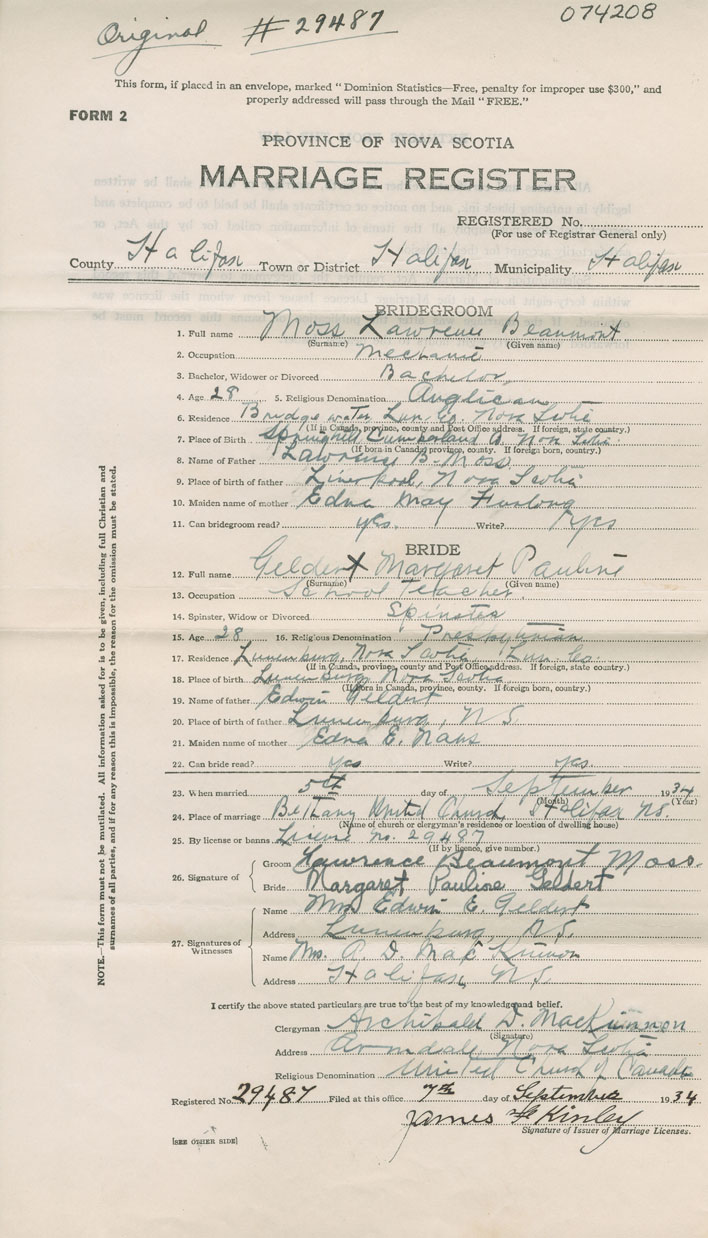 Original # 29487
074208
This form, if placed in an envelope, marked "Dominion Statistics—Free, penalty for improper use $300," and
properly addressed will pass through the Mail "FREE."
FORM 2
PROVINCE OF NOVA SCOTIA
MARRIAGE REGISTER
REGISTERED No.
(For use of Registrar General only)
County Halifax Town or District Halifax Municipality Halifax
BRIDEGROOM
1. Full name Moss Lawrence Beaumont
(Surname) (Given name)
2. Occupation Mechanic
3. Bachelor, Widower or Divorced Bachelor
4. Age 28 5. Religious Denomination Anglican
6. Residence Bridgewater, Lun. Co. Nova Scotia
(If in Canada, province, county and Post Office address. If foreign, state country.)
7. Place of Birth Springhill Cumberland Co. Nova Scotia
(If born in Canada, province, county. If foreign born, country.)
8. Name of Father Lawrence B. Moss
9. Place of birth of father Liverpool, Nova Scotia
10. Maiden name of mother Edna May Furlong
11. Can bridegroom read? yes. Write? yes
BRIDE
12. Full name Geldert Margaret Pauline
(Surname) (Given name)
13. Occupation School Teacher
14. Spinster, Widow or Divorced Spinster
15. Age 28 16. Religious Denomination Presbyterian
17. Residence Lunenburg, Nova Scotia Lun. Co.
(If in Canada, province, county and Post Office address. If foreign, state country.)
18. Place of birth Lunenburg, Nova Scotia
(If born in Canada, province, county. If foreign born, country.)
19. Name of father Edwin Geldert
20. Place of birth of father Lunenburg, N.S.
21. Maiden name of mother Edna E.
22. Can bride read? yes Write? yes.
23. When married 5th day of September 1934
(Month) (Year)
24. Place of marriage Bethany United Church, Halifax N.S.
(Name of church or clergyman's residence or location of dwelling house)
25. By license or banns License no. 29487
(If by licence, give number.)
26. Signature of
Groom Lawrence Beaumont Moss
Bride Margaret Pauline Geldert
27. Signatures of Witnesses
Name Mrs Edwin E. Geldert
Address Lunenburg, N.S.
Name Mrs. A. D. MacKinnon
Address Halifax, N.S.
I certify the above stated particulars are true to the best of my knowledge and belief.
Clergyman Archibald D. MacKinnon
(Signature)
Address Nova Scotia
Religious Denomination United Church of Canada
Registered No. 29487 Filed at this office 7th day of September 1934
James Kinley
Signature of Issuer of Marriage Licenses.
[SEE OTHER SIDE]
NOTE.—This form must not be mutilated. All information asked for is to be given, including full Christian and
surnames of all parties, and if for any reason this is impossible, the reason for the omission must be stated.